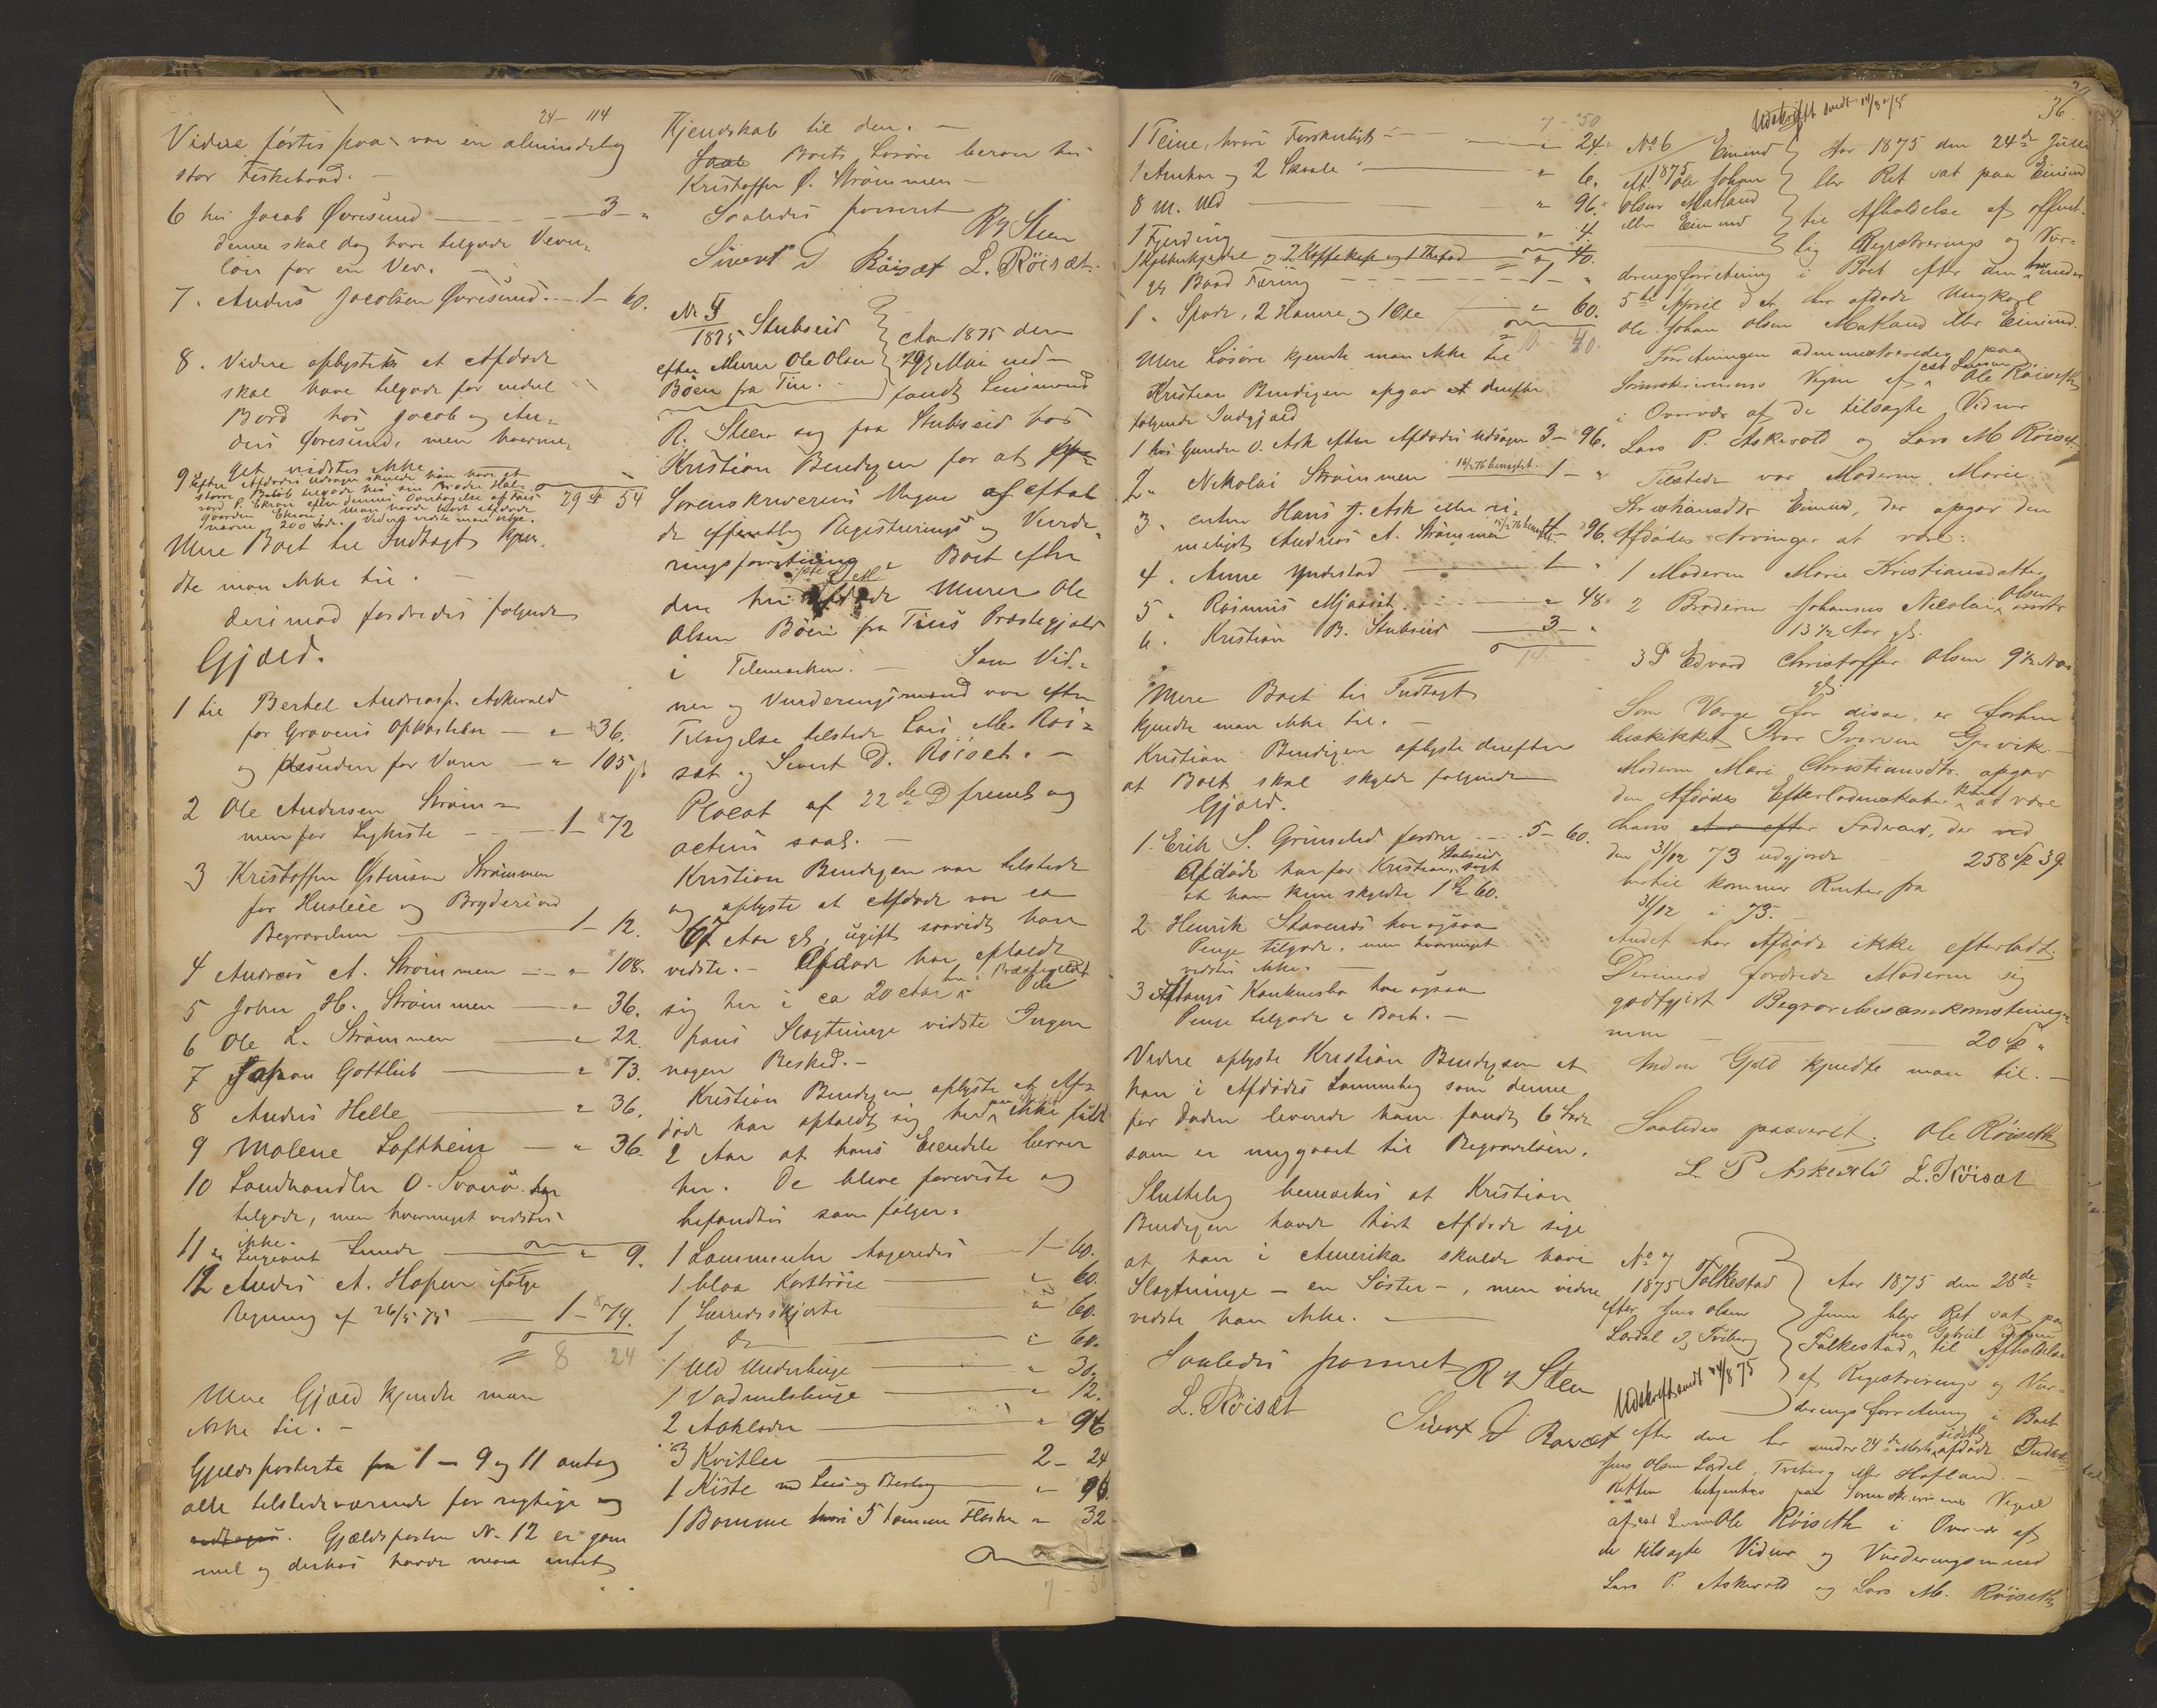 24 - 114
Videre førtes paa var en almindelig
stor Fiskebaad. -
6 hos Jacob Øvresund - 3 - "
denne skal dog have tilgode Væve-
løn for en Vev. -
7. Anders Jacobsen Øvresund - 1 - 60.
8. Videre oplystes at Afdøde
skal have tilgode for endel
Bord hos Jacob og An-
ders Øvresund, men hvorme-
get vidstes ikke
9 Efter Afdødes Udsagn skulde han have et
større Beløb tilgode hos sin Broder Hal-
vord P. Ekran efter dennes Overtagelse af Fars
gaarden Ekran. Man havde hørt Afdøde
nævne 200 Spd. Videre vidste man ikke.
29 " 54
Mere Boet til Indtægt kjen-
dte man ikke til. -
Derimod fordredes følgende
Gjæld.
1 til Bertel Andreas. Askvold
for Gravens Opkastelse - " 36.
og desuden for Varer - " 105
2 Ole Andersen Strøm-
men for Ligkiste - 1 - 72
3 Kristoffer Østensen Strømmen
for Husleie og Bryderi ved
Begravelsen - 1 - 12.
4 Andreas A. Strømmen - " 108.
5 John H. Strømmen - " 36.
6 Ole L. Strømmen - " 22.
7 Gottlieb - " 73.
8 Anders Helle - " 36.
9 Malene Loftheim - " 36.
10 Landhandler O. Svanø har
tilgode, men hvormeget vidstes
ikke.
11 " Sergeant Lunde - " 9.
12 Anders A. Hopen ifølge
Regning af 26/5 75 - 1 - 79.
8 24
Mere Gjæld kjendte man
ikke til. -
Gjældsposterne fra 1 - 9 og 11 antog
alle tilstedeværende for rigtige og
. Gjældsposten No 12 er gam
mel og derhos havde man intet
Kjendskab til den. -
Boets Løsøre beror hos
Kristoffer Ø. Strømmen -
Saaledes passeret
R Steen
Sivert D Röisæt L. Röisæt.
No 5
1875 Stubseid
efter Murer Ole Olsen
Böen fra Tin.
Aar 1875 den
29de Mai ind-
fandt Lensmand
R. Steen sig paa Stubseid hos
Kristian Bendixen for at
Sorenskriverens Vegne afhol-
de offentlig Registrerings og Vurde-
ringsforretning i Boet efter
den her afdøde Murer Ole
Olsen Böen fra Tins Præstegjeld
i Telemarken. - Som Vid-
ner og Vurderingsmænd var efter
Tilsigelse tilstede Lars M. Röi-
sæt og Sivert D. Röisæt. -
Placat af 22de fremlagdes
actens saal. -
Kristian Bendixen var tilstede
og oplyste at Afdøde var ca
67 Aar gl, ugift saavidt han
vidste. - Afdøde har opholdt
sig her i ca 20 Aar her i Præstegjeldet Om
hans Slægtninge vidste Ingen
nogen Besked. -
Kristian Bendixen oplyste at Af-
døde har opholdt sig her ikke fuldt
2 Aar at hans Eiendele beror
her. De bleve foreviste og
befandtes som følger:
1 Lommeuhr - 1 - 60.
1 blaa - " 60.
1 Lærredsskjorte - " 60.
1 Do - " 60.
1 Uld Underbuxe - " 30.
1 Vadmelsbuxe - " 12.
2 Aaklæder - " 96
3 Kvitler - 2 - 24
1 Kiste med Laas og Beslag - " 96.
1 Bomme hvori 5 tomme Flasker " 32
7 - 50
7 - 50
1 Teine, hvori Forskjelligt - " 24.
1 Anker og 2 Skaale - " 6.
8 m. Uld - " 96.
1 Fjerding - " 4.
1 Kobberkjedel og 2 Kaffekop og 1 Thefad " 40.
1 gl Baad Færing - 1 - "
1 " Spade, 2 Hamre og 1 Øxe - " 60.
10 - 40.
Mere Løsøre kjendte man ikke til
Kristian Bendixen opgav at derefter
følgende Indgjæld
1 hos Gunder O. Ask efter Afdødes Udsagn 3 - 96.
2 " Nikolai Strømmen 1 - "
3 " enten Hans J. Ask eller ri-
meligst Andreas A. Strømmen - 96.
4 " Anne Yndestad - 1 - "
5 " Rasmus - " 48
6 " Kristian B. Stubseid - 3 - "
14
Mere Boet til Indtægt
kjendte man ikke til. -
Kristian Bendixen oplyste derefter
at Boet skal skylde følgende
Gjæld.
1. Erik S. Grimelid fordrer - 5 - 60.
Afdøde har for Kristian Stubseid sagt
at han kun skyldte 1 Sp 60.
2 Henrik Stavenes har ogsaa
Penge tilgode, men hvormeget
vidstes ikke. -
3 har ogsaa
Penge tilgode i Boet. -
Videre oplyste Kristian Bendixen at
han i Afdødes Lommebog som denne
før Døden leverede ham fandt 6 Spd
som er medgaaet til Begravelsen.
Sluttelig bemærkes at Kristian
Bendixen havde hørt Afdøde sige
at han i Amerika skulde have
Slægtninge - en Søster -, men videre
vidste han ikke. -
Saaledes passeret R Steen
L. Röisæt
Sivert D Röisæt
36
Udskrift sendt 14/8 75
No 6
1875
Eimind
eft. Ole Johan
Olsen Matland
eller Eimind
Aar 1875 den 24de Juli
blev Ret sat paa Eimind
til Afholdelse af offent-
lig Registrerings og Vur-
deringsforretning i Boet efter den her under
5te April d. A. her afdøde Ungkarl
Ole Johan Olsen Matland eller Eimind.
Forretningen administreredes paa
Sorenskriverens Vegne af Ole Röiseth
i Overvær af de tilsagte Vidner
Lars P. Askevold og Lars M Röiset.
Tilstede var Moderen Marie
Kristiansdtr Eimind, der opgav den
Afdødes Arvinger at være:
1 Moderen Marie Kristiansdatter
2 Broderen Johannes Nicolai Olsen
13 1/2 Aar gl.
3 Do Edvard Christoffer Olsen 9 1/2 Aar
gl.
Som Værge for disse er forhen
beskikket Ivar Iversen Grovik. -
Moderen Mari Christiansdtr. opgav
den Afdødes Efterladenskaber kun at være
hans Fadrearv, der ved
den 31/12 73 udgjorde 258 Sp 39
hertil kommer Renter fra
31/12 i 73.
Andet har Afdøde ikke efterladt.
Derimod fordrede Moderen sig
godtgjort Begravelsesomkostninger
- 20 Sp "
Anden Gjæld kjendte man til. -
Saaledes passeret. Ole Röiseth
L. P Askevold L. Röisæt
No 7
1875 Folkestad
efter Jens Olsen
Lørdal
Aar 1875 den 28de
Juni blev Ret sat paa
Folkestad hos Gabriel til Afholdelse
af Registrerings og Vur-
deringsforretning i Boet
Udskrift sendt 14/8 75
efter den her under 24de Marts afdøde
Jens Olsen Lørdal, eller Hofland. -
Retten betjentes paa Sorenskriverens Vegne
af Ole Röiseth i Overvær af
de tilsagte Vidner og Vurderingsmænd
Lars P. Askevold og Lars M. Röiseth